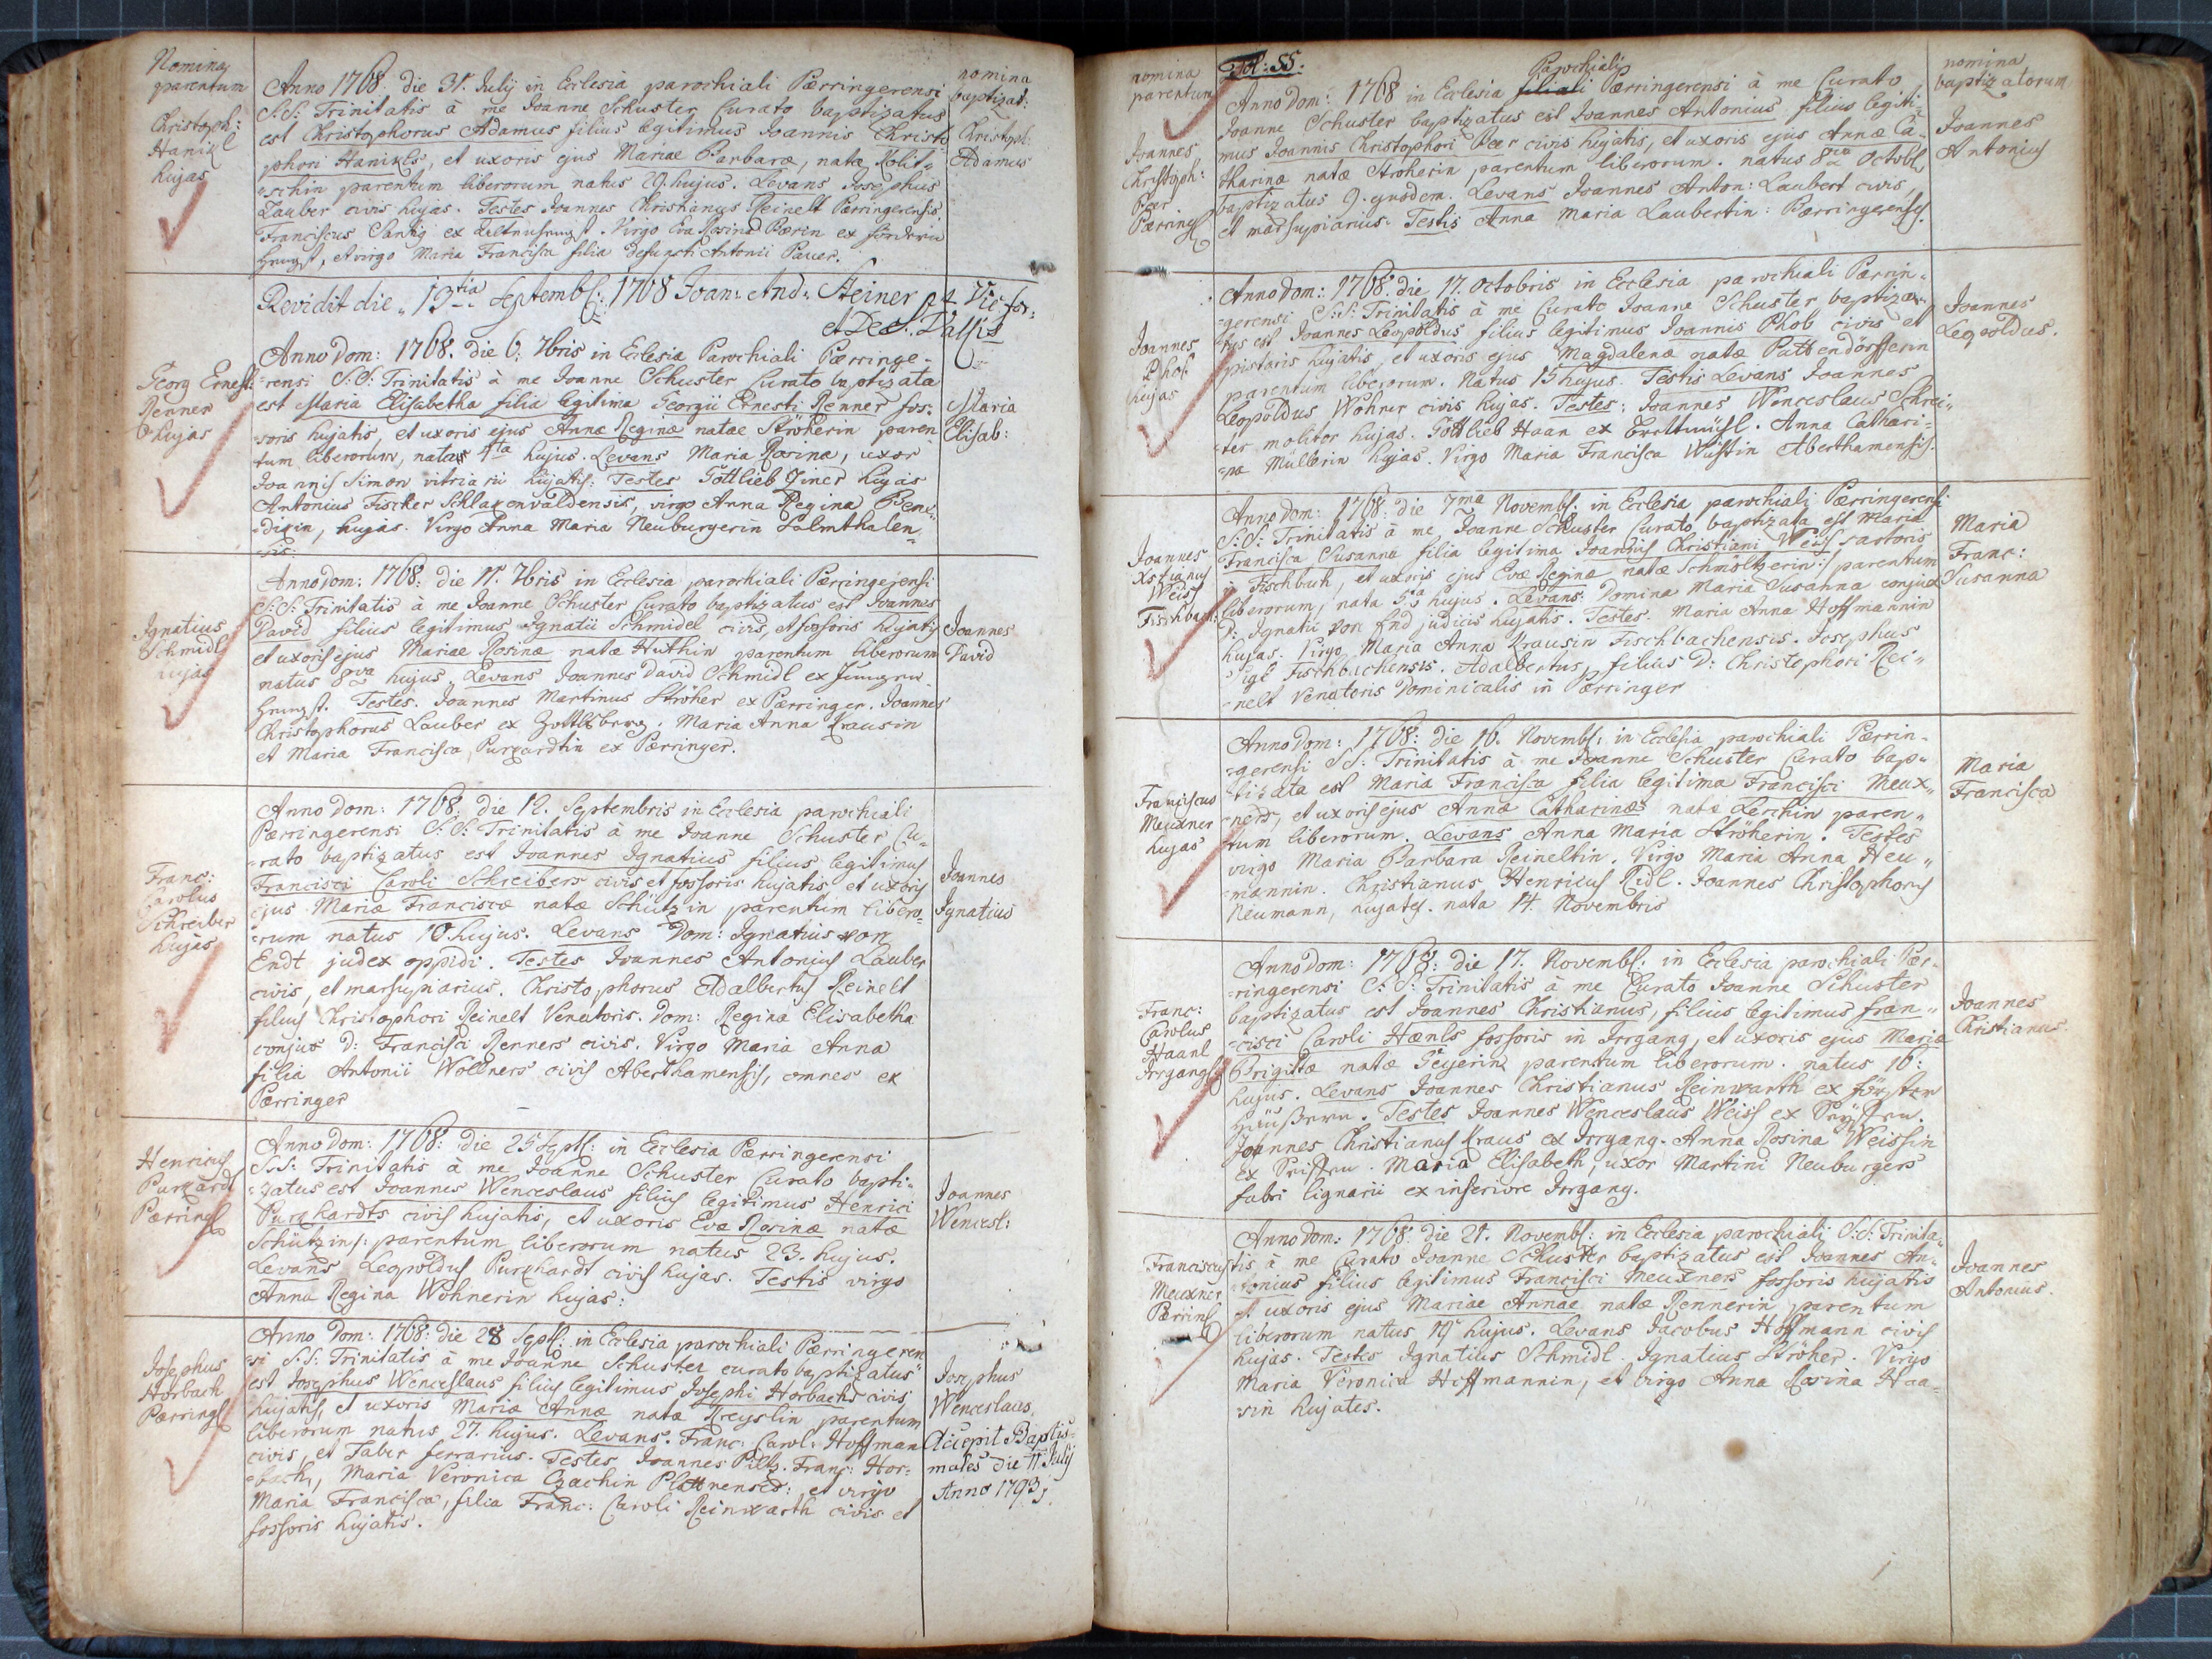 Nomina
parentum
Christoph:
Hanikl
hujas
Anno 1768. die 31. July in Ecclesia parochiali Pærringerensi
S:S: Trinitatis à me Joanne Schuster Curato baptizatus
est Christophorus Adamus filius legitimus Joannis Christo
phori Hanikls, et uxoris ejus Mariae Barbaræ, natæ Kolit-
schin parentum liberorum natus 29. hujus. Levans Josephus
Lauber civis hujas. Testes Joannes Christianus Reinelt Pærringerensis
Franciscus ex Virgo Eva Rosina Pærin ex
et virgo Maria Francisca filia defuncti Antonii Pauer.
nomina
baptizat:
Christoph:
Adamus
Revidit die 13tia Septembl: 1768 Joan: And: Steiner p:t: Vic: for:
Georg Ernest:
Renner
hujas
Anno Dom: 1768. die 6. 7bris in Eclesia Parochiali Pærringe-
rensi S:S: Trinitatis à me Joanne Schuster Curato baptizata
est Maria Elisabetha filia legitima Georgii Ernesti Renner fos-
soris hujatis, et uxoris ejus Annæ Reginæ natae Ströherin paren
tum liberorum, nata 4ta hujus. Levans Maria Rosina, uxor
Joannis Simon vitriarii hujatis: Testes Gottlieb Zíner hujas
Antonius Fischer Schlaxenvaldensis, virgo Anna Regina Bene-
dixin, hujas. Virgo Anna Maria Neuburgerin Salmthalen-
sis.
Maria
Elisab:
Ignatius
Schmidl
hujas
Anno dom: 1768: die 11. 7bris in Eclesia parochiali Pærringerensi
S:S: Trinitatis à me Joanne Schuster Curato baptizatus est Joannes
David filius legitimus Ignatii Schmidel civis, et fossoris hujatis
et uxoris ejus Mariae Rosinæ natæ Huthin parentum liberorum
natus 8va hujus. Levans Joannes David Schmidl ex
Testes. Joannes Martinus Ströher ex Pærringer. Joannes
Christophorus Lauber ex Maria Anna Krausin
et Maria Francisca Purgardtin ex Pærringer.
Joannes
David
Franc:
Carolus
Schreiber
hujas
Anno Dom: 1768: die 12. Septembris in Eclesia parochiali
Pærringerensi S:S: Trinitatis à me Joanne Schuster Cu-
rato baptizatus est Joannes Ignatius filius legitimus
Francisci Caroli Schreibers civis et fossoris hujatis, et uxoris
ejus Mariæ Franciscæ natæ Schützin parentum libero-
rum natus 10. hujus. Levans Dom: Ignatius von
Endt judex oppidi. Testes Joannes Antonius Lauber
civis, et marsupiarius. Christophorus Adalbertus Reinelt
filius Christophori Reinelt Venatoris. Dom: Regina Elisabetha
conjux D: Francisci Renners civis. Virgo Maria Anna
filia Antonii Wollners civis Aberthamensis, omnes ex
Pærringer
Joannes
Ignatius
Henricus
Purgardt
Pærring
Anno Dom: 1768: die 25 Septl: in Eclesia Pærringerensi
S:S: Trinitatis à me Joanne Schuster Curato bapti-
zatus est Joannes Wenceslaus filius legitimus Henrici
Purghardts civis hujatis, et uxoris Evæ Rosinæ natæ
Schützins: parentum liberorum natus 23. hujus.
Levans Leopoldus Purghardt civis hujas. Testis virgo
Anna Regina Wohnerin hujas:
Joannes
Wencesl:
Josephus
Horbach
Pærring
Anno Dom: 1768: die 28 Septl: in Eclesia parochiali Pærringeren
si S:S: Trinitatis à me Joanne Schuster curato baptizatus
est Josephus Wenceslaus filius legitimus Josephi Horbachs civis
hujatis, et uxoris Mariæ Annæ natæ Kreyslin parentum
liberorum natus 27. hujus. Levans. Franc: Carol: Hoffman
civis, et Faber ferrarius. Testes Joannes Piltz. Franc: Hor-
bach, Maria Veronica Czachin et virgo
Maria Francisca, filia Franc: Caroli Reinwarth civis et
fossoris hujatis.
Josephus
Wenceslaus
Accepit Baptis-
males die 11 July
Anno 1793
Fol: 55.
nomina
parentum
Joannes
Christoph:
Peer
Pærring
Parochiali
Anno Dom: 1768 in Eclesia filiali Pærringerensi à me Curato
Joanne Schuster baptizatus est Joannes Antonius filius legiti-
mus Joannis Christophori Peer civis hujatis, et uxoris ejus Annæ Ca-
tharinæ natæ Stroherin, parentum liberorum. natus 8va Octobl
baptizatus 9. ejusdem. Levans Joannes Anton: Laubert civis,
et marsupiarius. Testis Anna Maria Laubertin: Pærringerenses.
nomina
baptizatorum
Joannes
Antonius
Joannes
Phob
hujas
Anno dom: 1768. die 17. octobris in Ecclesia parochiali Pærrin-
gerensi S:S: Trinitatis à me Curato Joanne Schuster baptiza-
tus est Joannes Leopoldus filius legitimus Joannis Phob civis et
pistoris hujatis, et uxoris ejus Magdalenæ natæ Puttendörfferin
parentum liberorum. Natus 15 hujus. Testis Levans Joannes
Leopoldus Wohner civis hujas. Testes: Joannes Wenceslaus Schrei-
ter molitor hujas. Gottlieb Haan ex Anna Cathari-
na Müllerin hujas. Virgo Maria Francisca Wüstin Aberthamensis.
Joannes
Leopoldus.
Joannes
Xstianus
Weis
Fischbach:
Anno Dom: 1768: die 7ma Novembl: in Eclesia parochiali Pærringerensi
S:S: Trinitatis à me Joanne Schuster Curato baptizata est Maria
Francisca Susanna filia legitima Joannis Christiani Weis sartoris
in Fischbach, et uxoris ejus Evæ Reginæ natæ Schmöltzerin: parentum
liberorum, nata 5ta hujus. Levans: Domina Maria Susanna conjux
D: Ignatii von End judicis hujatis. Testes. Maria Anna Hoffmannin
hujas. Virgo Maria Anna Krausin Fischbachensis. Josephus
Sigl Fischbachensis. Adalbertus, filius D: Christophori Rei-
nelt Venatoris Dominicalis in Pærringer
Maria
Franc:
Susanna
Franciscus
Meuxner
hujas
Anno Dom: 1768: die 16. Novembl: in Eclesia parochiali Pærrin-
gerensi SS: Trinitatis à me Joanne Schuster Curato bap-
tizata est Maria Francisca filia legitima Francisci Meux-
ners, et uxoris ejus Annæ Catharinæ natæ Lerchin paren-
tum liberorum. Levans Anna Maria Ströherin. Testes
virgo Maria Barbara Reineltin. Virgo Maria Anna Neu-
mannin. Christianus Henricus Ridl. Joannes Christophorus
Neumann, hujates. nata 14. Novembris
Maria
Francisca
Franc:
Carolus
Haanl
Irrgang
Anno Dom: 1768: die 17. Novembl: in Eclesia parochiali Pær-
ringerensi S:S: Trinitatis à me Curato Joanne Schuster
baptizatus est Joannes Christianus, filius legitimus Fran-
cisci Caroli Hænls fossoris in Irrgang, et uxoris ejus Mariæ
Brigittæ natæ Geyerin parentum liberorum. natus 16:
hujus. Levans Joannes Christianus Reinwarth ex
Testes Joannes Wenceslaus Weiss ex
Joannes Christianus Kraus ex Irrgang. Anna Rosina Weissin
ex Maria Elisabeth, uxor Martini Neuburgers
fabri lignarii ex inferiore Irrgang.
Joannes
Christianus.
Franciscus
Meuxner
Pærring
Anno Dom: 1768: die 21. Novembl: in Eclesia parochiali S:S: Trinita-
tis à me Curato Joanne Schuster baptizatus est Joannes An-
tonius filius legitimus Francisci Meuxners fossoris hujatis
et uxoris ejus Mariae Annae natæ Rennerin parentum
liberorum natus 19 hujus. Levans Jacobus Hoffmann civis
hujas. Testes Ignatius Schmidl. Ignatius Ströher. Virgo
Maria Veronica Hoffmannin, et virgo Anna Rosina Haa-
sin hujates.
Joannes
Antonius.